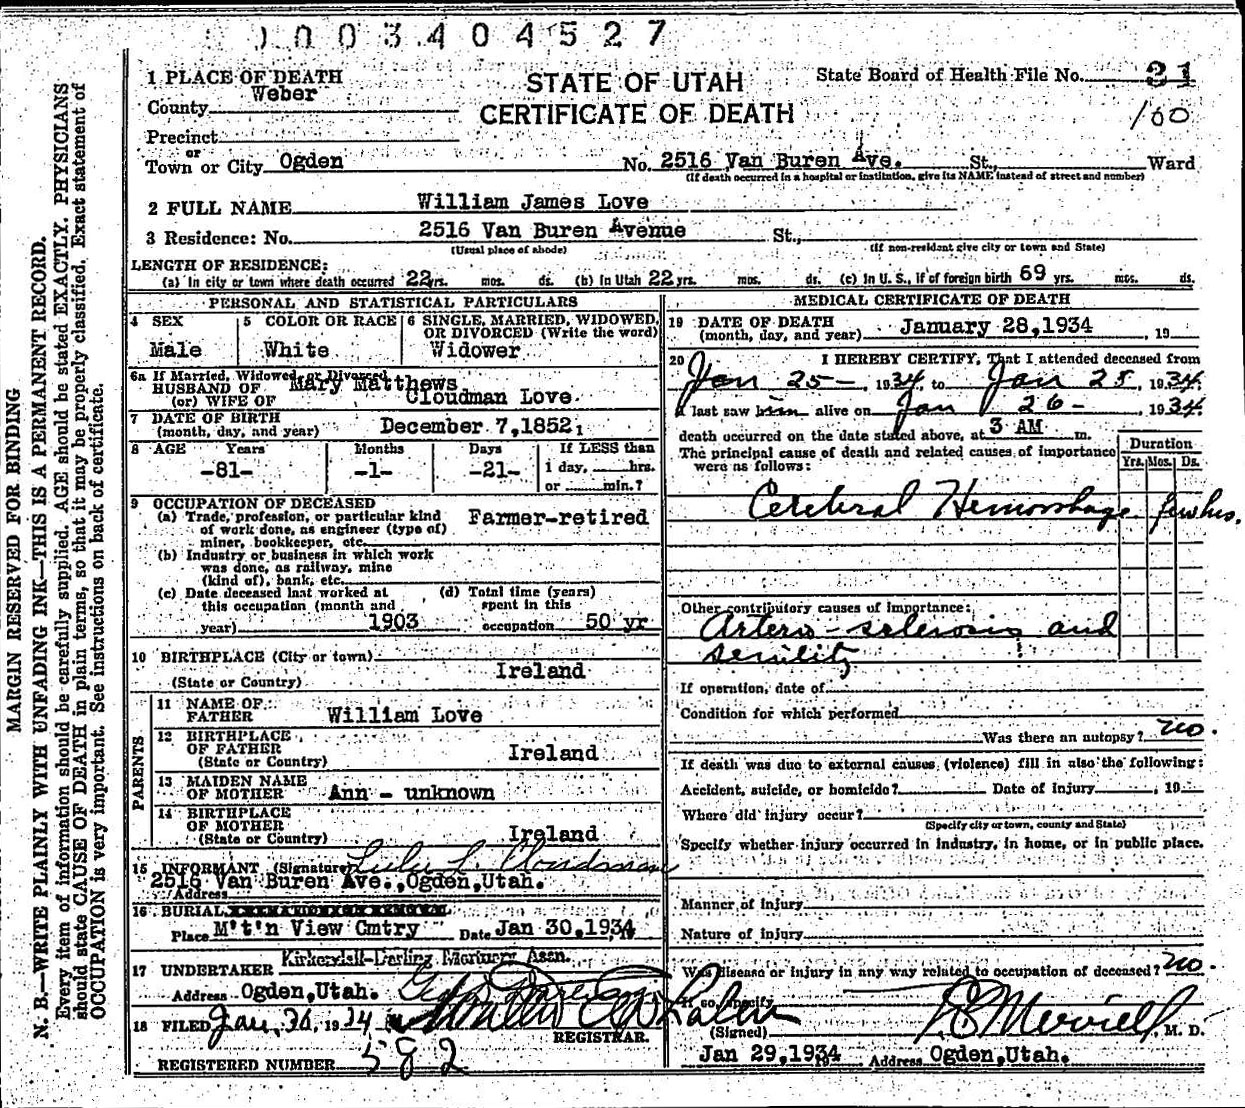 0003404527
MARGIN RESERVED FOR BINDING
N. B.—WRITE PLAINLY WITH UNFADING INK—THIS IS A PERMANENT RECORD.
Every item of information should be carefully supplied. AGE should be stated EXACTLY. PHYSICIANS
should state CAUSE OF DEATH in plain terms, so that it may be properly classified. Exact statement of
OCCUPATION is very important. See instructions on back of certificate.
STATE OF UTAH
CERTIFICATE OF DEATH
State Board of Health File No. 31
100
1 PLACE OF DEATH
County Weber
Precinct
or
Town or City Ogden No. 2516 Van Buren Ave. St., Ward
(If death occurred in a hospital or institution, give its NAME instead of street and number)
2 FULL NAME William James Love
3 Residence: No. 2516 Van Buren Avenue St.,
(Usual place of abode) (If non-resident give city or town and State)
LENGTH OF RESIDENCE:
(a) In city or town where death occurred 22 yrs. mos. ds. (b) In Utah 22 yrs. mos. ds. (c) In U. S., if of foreign birth 69 yrs. mos. ds.
PERSONAL AND STATISTICAL PARTICULARS
4 SEX
Male
5 COLOR OR RACE
White
6 SINGLE, MARRIED, WIDOWED,
OR DIVORCED (Write the word)
Widower
6a If Married, Widowed or Divorced
HUSBAND OF Mary Matthews
(or) WIFE OF Cloudman Love
7 DATE OF BIRTH
(month, day, and year) December 7, 1852
8 AGE Years Months Days If LESS than
-81- -1- -21- 1 day, hrs.
or min.?
9 OCCUPATION OF DECEASED
(a) Trade, profession, or particular kind
of work done, as engineer (type of)
miner, bookkeeper, etc. Farmer-retired
(b) Industry or business in which work
was done, as railway, mine
(kind of), bank, etc.
(c) Date deceased last worked at
this occupation (month and
year) 1903
(d) Total time (years)
spent in this
occupation 50 yr
10 BIRTHPLACE (City or town)
(State or Country) Ireland
PARENTS
11 NAME OF
FATHER William Love
12 BIRTHPLACE
OF FATHER
(State or Country) Ireland
13 MAIDEN NAME
OF MOTHER Ann - unknown
14 BIRTHPLACE
OF MOTHER
(State or Country) Ireland
15 INFORMANT (Signature) L. Cloudman
2516 Van Buren Ave., Ogden, Utah.
Address
16 BURIAL
Place M't'n View Cmtry Date Jan 30, 1934
17 UNDERTAKER Kirkendall-Darling Mortuary Assn.
Address Ogden, Utah.
18 FILED Jan. 30, 1934
REGISTRAR.
REGISTERED NUMBER 582
MEDICAL CERTIFICATE OF DEATH
19 DATE OF DEATH
(month, day, and year) January 28, 1934, 19
20 I HEREBY CERTIFY, That I attended deceased from
Jan 25-, 1934 to Jan 28, 1934
I last saw him alive on Jan 26-, 1934
death occurred on the date stated above, at 3 AM m.
The principal cause of death and related causes of importance
were as follows:
Duration
Yrs. Mos. Ds.
Cerebral Hemorrhage few hrs.
Other contributory causes of importance:
Arterio-sclerosis and
senility
If operation, date of
Condition for which performed
Was there an autopsy? no.
If death was due to external causes (violence) fill in also the following:
Accident, suicide, or homicide? Date of injury , 19
Where did injury occur?
(Specify city or town, county and State)
Specify whether injury occurred in industry, in home, or in public place.
Manner of injury
Nature of injury
Was disease or injury in any way related to occupation of deceased? no.
If so, specify
(Signed) Merrill, M. D.
Jan 29, 1934 Address Ogden, Utah.